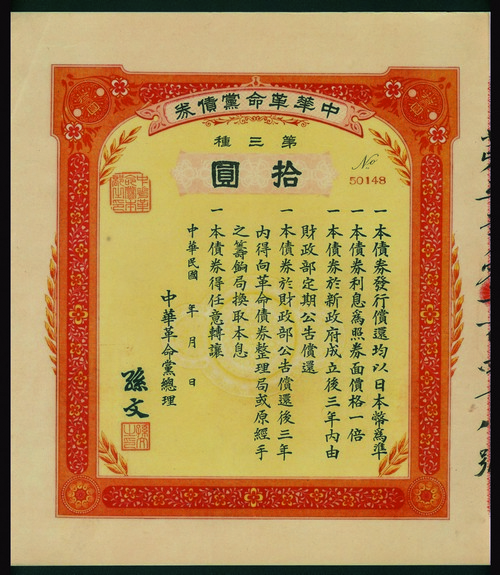 中華革命黨債券
第三種
拾圓
No
50148
一本債券發行償還均以日本幣爲準
一本債券利息爲照券面價格一倍
一本債券於新政府成立後三年內由
財政部定期公告償還
一本債券於財政部公告償還後三年
內得向革命債券整理局或原經手
之籌餉局換取本息
一本債券得任意轉讓
中華民國 年 月 日
中華革命黨總理
孫文
孫文之印